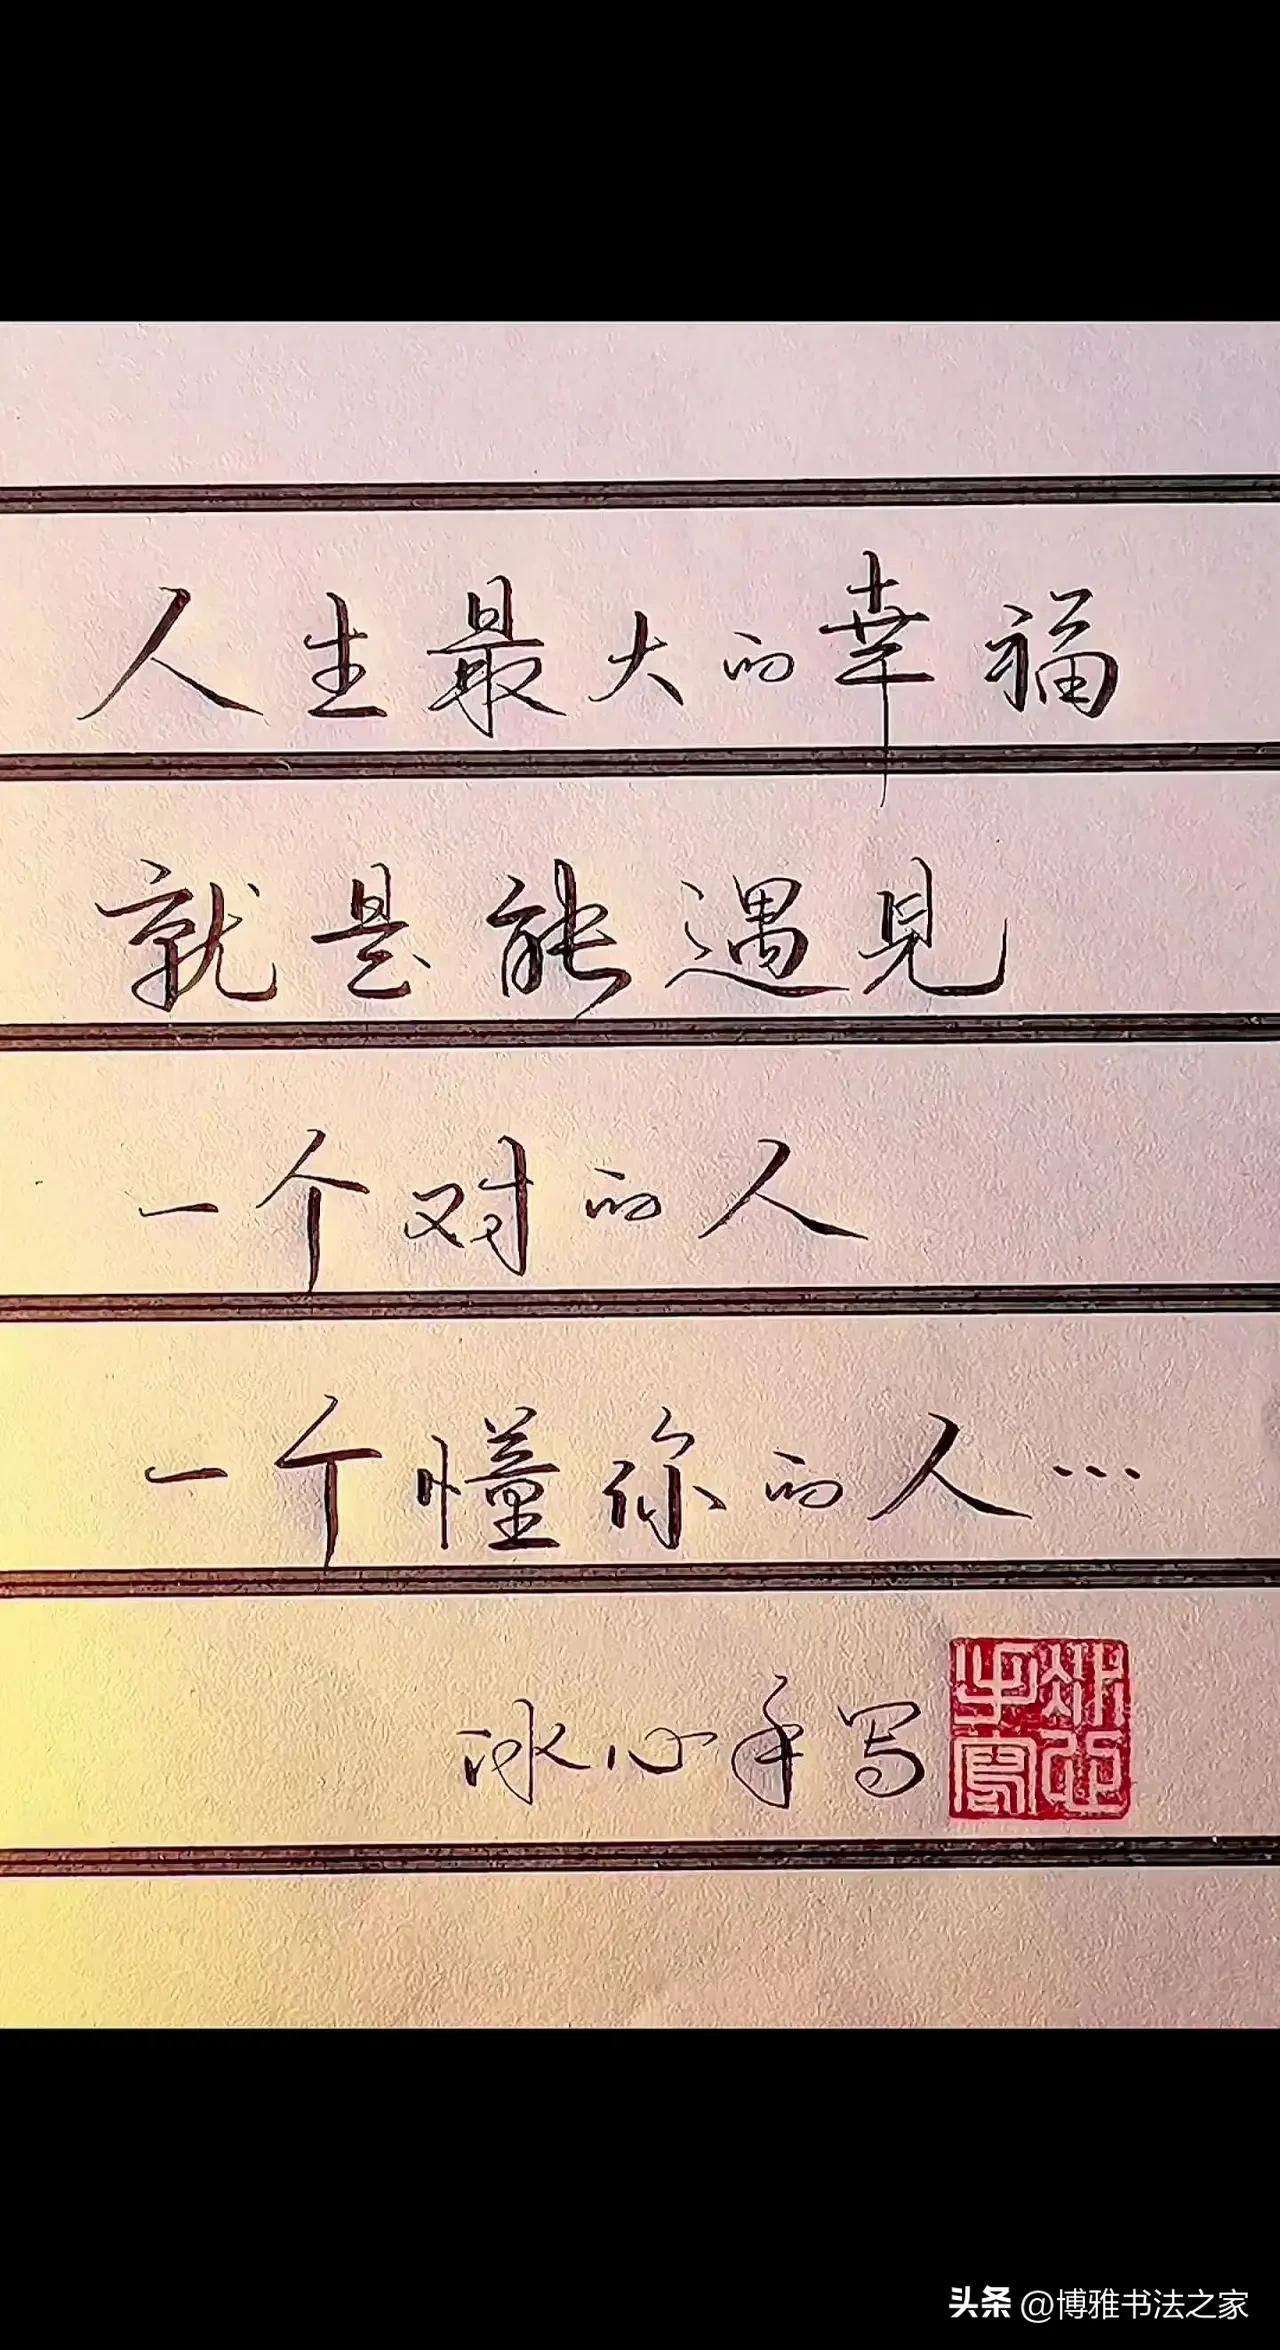 人生最大的幸福
就是能遇見
一个对的人
一个懂你的人…
冰心手写
冰心手寫
头条 @博雅书法之家